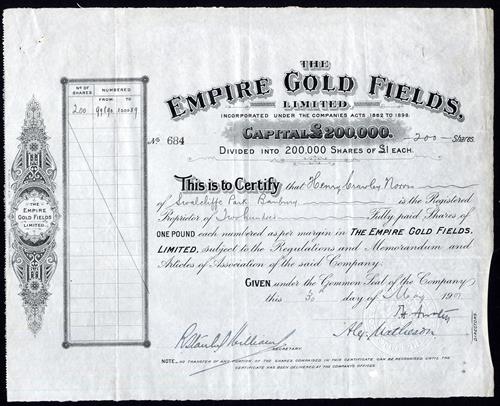 THE
EMPIRE GOLD FIELDS,
LIMITED.
INCORPORATED UNDER THE COMPANIES ACTS 1862 TO 1898.
CAPITAL £200,000.
DIVIDED INTO 200,000 SHARES OF £1 EACH.
No 684
200 Shares.
No OF SHARES
NUMBERED
FROM TO
200
THE EMPIRE GOLD FIELDS LIMITED.
This is to Certify that Henry Crawley Norris
of Swalcliffe Park Banbury is the Registered
Proprietor of Two hundred Fully paid Shares of
ONE POUND each numbered as per margin in THE EMPIRE GOLD FIELDS,
LIMITED, subject to the Regulations and Memorandum and
Articles of Association of the said Company.
GIVEN under the Common Seal of the Company
this 30th day of May 190
Alex Matheson
DIRECTORS
R Stanley Williams
SECRETARY
NOTE._NO TRANSFER OF ANY PORTION OF THE SHARES COMPRISED IN THIS CERTIFICATE CAN BE RECOGNISED UNTIL THE
CERTIFICATE HAS BEEN DELIVERED AT THE COMPANY'S OFFICES.